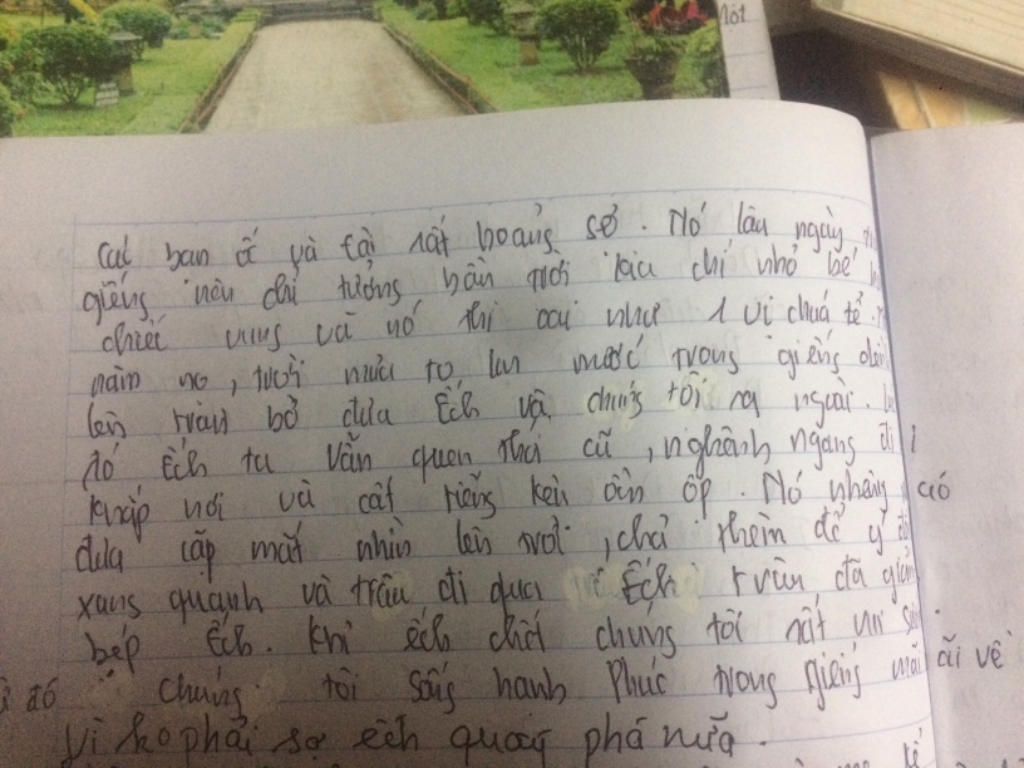 một
các bạn ốc và tôi rất hoảng sợ. Nó lâu ngày
giếng nên chỉ tưởng bầu trời kia chỉ nhỏ bé
chiếc vung và nó thì oai như 1 vị chúa tể.
năm nọ, trời mưa to làm nước trong giếng
lên tràn bờ đưa Ếch và chúng tôi ra ngoài.
đó Ếch ta vẫn quen thói cũ, nghênh ngang đi
khắp nơi và cất tiếng kêu ồm ộp. Nó nhâng
đưa cặp mắt nhìn lên trời, chả thèm để ý
xung quanh và trâu đi qua Ếch trâu đã giẫm
bẹp Ếch. Khi ếch chết chúng tôi rất vui
đó chúng tôi sống hạnh phúc trong giếng mãi
vì ko phải sợ ếch quấy phá nữa.
cáo
ãi về